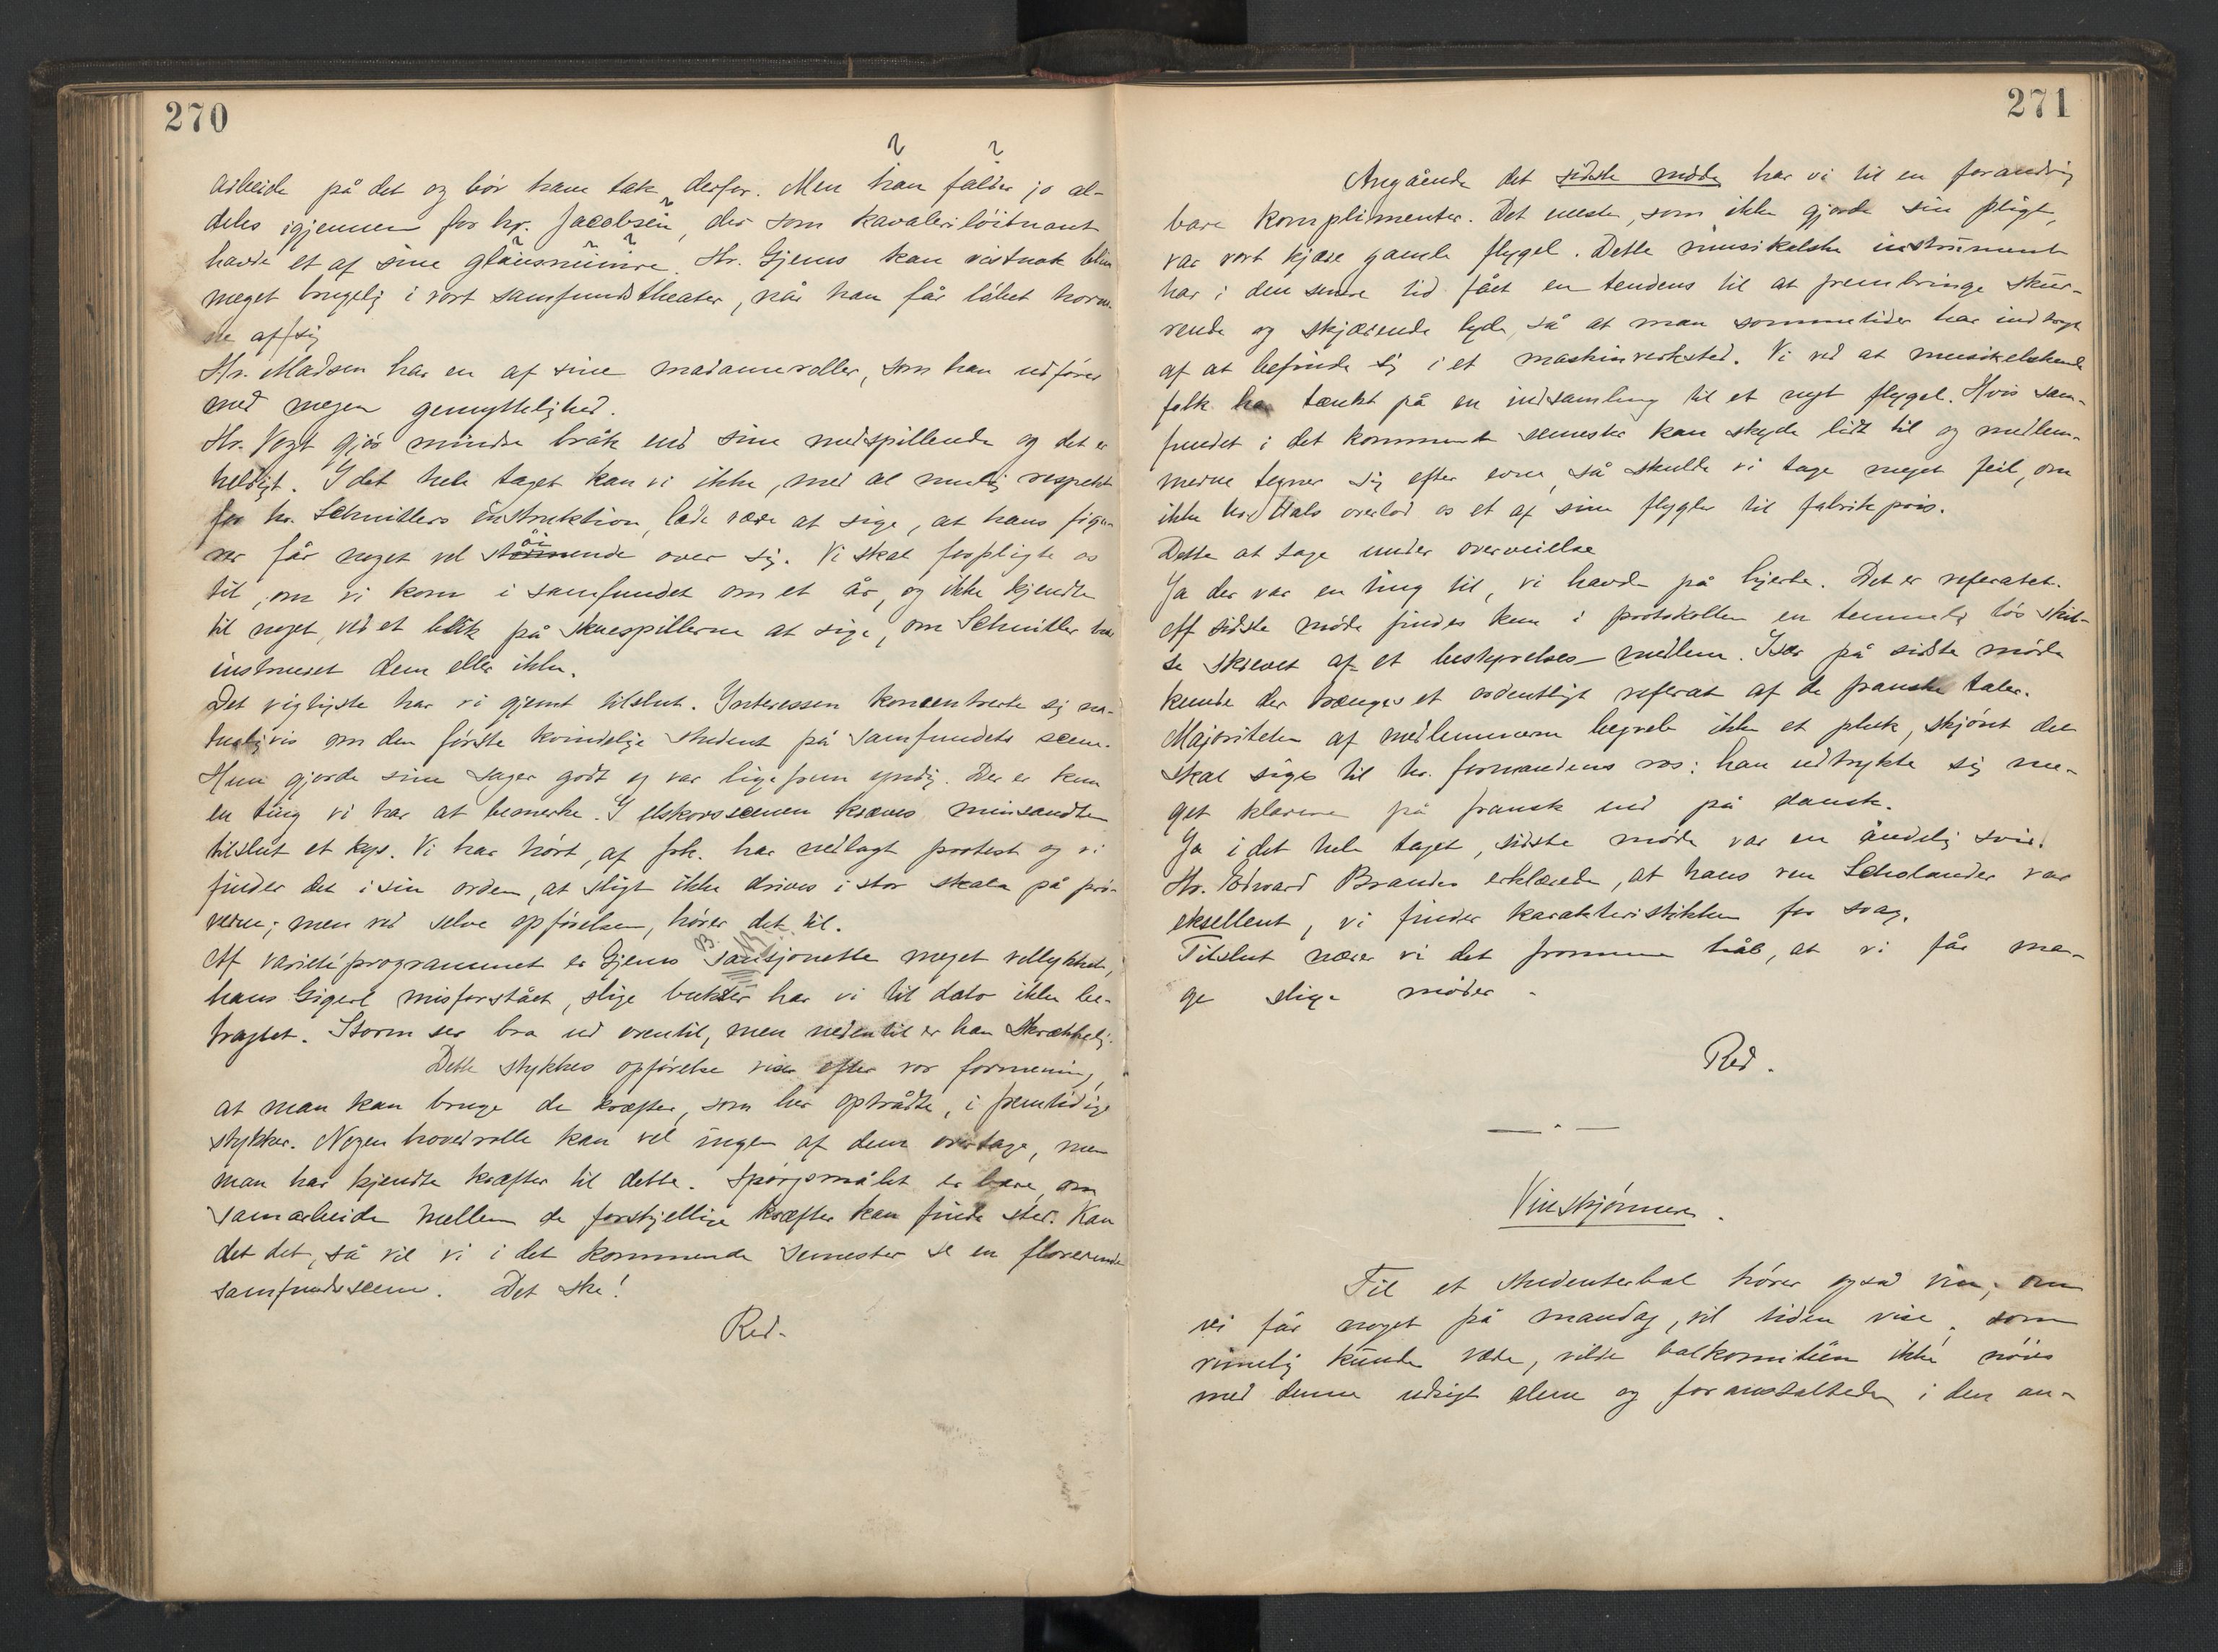 270
arbeide på det og bör have tak derfor. Men han falder jo al-
deles igjennem for hr. Jacobsen, der som kavaleriløitnant
havde et af sine glansnumre. Hr. Gjems kan vistnok blive
meget brugelig i vort samfundstheater, når han får løbet horne-
ne af sig
Hr. Madsen har en af sine madameroller, som han udfører
med megen gemyttelighed.
Hr. Vogt gjør mindre bråk end sine medspillende og det er
heldigt. I det hele taget kan vi ikke, med al mulig respekt
for hr. Schnitlers instruktion, lade være at sige, at hans figu-
rer får noget vel støiende over sig. Vi skal forpligte os
til, om vi kom i samfundet om et år, og ikke kjendte
til noget, ved et blik på skuespillerne at sige, om Schnitler har
instrueret dem eller ikke.
Det vigtigste har vi gjemt tilslut. Interessen koncentrerte sig na-
turligvis om den første kvindelige student på samfundets scene.
Hun gjorde sine sager godt og var ligefrem yndig. Der er kun
en ting vi har at bemerke. I elskovsscenen kræves minsandten
tilslut et kys. Vi har hört, at frk. har nedlagt protest og vi
finder det i sin orden, at sligt ikke drives i stor skala på prö-
verne; men ved selve opförelsen, hörer det til.
Af varietéprogrammet er Gjems sansjonette meget vellykket,
hans Gigerl misforstået, slige bukser har vi til dato ikke be-
tragtet. Storm ser bra ud oventil, men nedentil er han skrækkelig.
Dette stykkes opförelse viser efter vor formening,
at man kan bruge de kræfter, som her optrådte, i fremtidige
stykker. Nogen hovedrolle kan vel ingen af dem overtage, men
man har kjendte kræfter til dette. Spörgsmålet er bare, om
samarbeide mellem de forskjellige kræfter kan finde sted. Kan
det det, så vil vi i det kommende semester se en florerende
samfundsscene. Det ske!
Red.
271
Angående det sidste möde har vi til en forandring
bare komplimenter. Det eneste, som ikke gjorde sin pligt,
var vort kjære gamle flygel. Dette musikalske instrument
har i den senere tid fået en tendens til at frembringe skur-
rende og skjærende lyde, så at man sommetider har indtryk
af at befinde sig i et maskinverksted. Vi ved at musikelskende
folk har tænkt på en indsamling til et nyt flygel. Hvis sam-
fundet i det kommende semester kan skyde lidt til og medlem-
merne tegner sig efter evne, så skulde vi tage meget feil, om
ikke brd Hals overlod os et af sine flygler til fabrikpris.
Dette at tage under overveielse
Ja der var en ting til, vi havde på hjerte. Det er referatet.
Af sidste möde findes kun i protokollen en temmelig lös skit-
se skrevet af et bestyrelses-medlem. Især på sidste möde
kunde der trænges et ordentligt referat af de franske taler.
Majoriteten af medlemmerne begreb ikke et pluk, skjönt det
skal siges til hr. formandens ros: han udtrykte sig me-
get klarere på fransk end på dansk.
Ja i det hele taget, sidste möde var en åndelig svir.
Hr. Edward Brandes erklærede, at hans ven Scholander var
eksellent, vi finder karakteristikken for svag.
Tilslut nærer vi det fromme håb, at vi får man-
ge slige möder.
Red.
Vinskjönnere.
Til et studenterbal hörer også vin; om
vi får noget på mandag, vil tiden vise, som
rimelig kunde være, vilde balkomitéen ikke nöies
med denne udsigt alene og foranstaltede i den an-